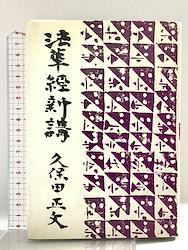 法華経新講
久保田正文